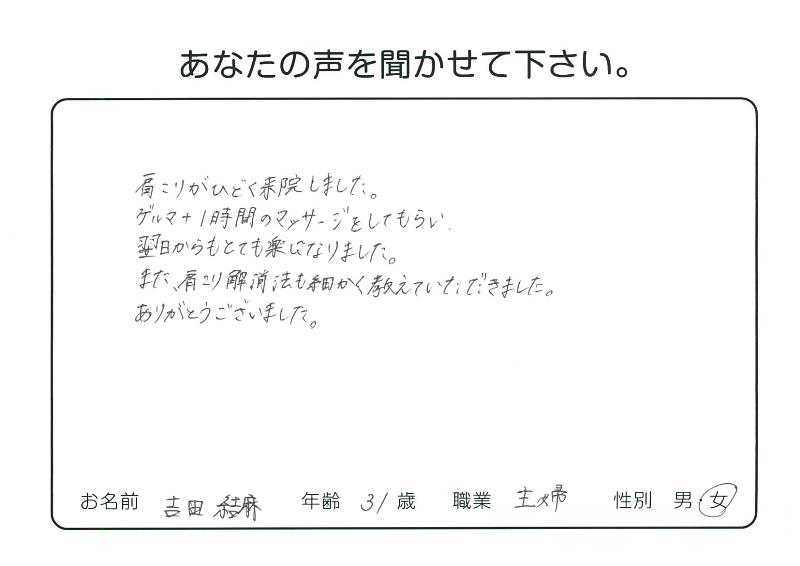 あなたの声を聞かせて下さい。
肩こりがひどく来院しました。
ゲルマ＋1時間のマッサージをしてもらい、
翌日からもとても楽になりました。
また、肩こり解消法も細かく教えていただきました。
ありがとうございました。
お名前 吉田 結麻 年齢 31 歳 職業 主婦 性別 男・女